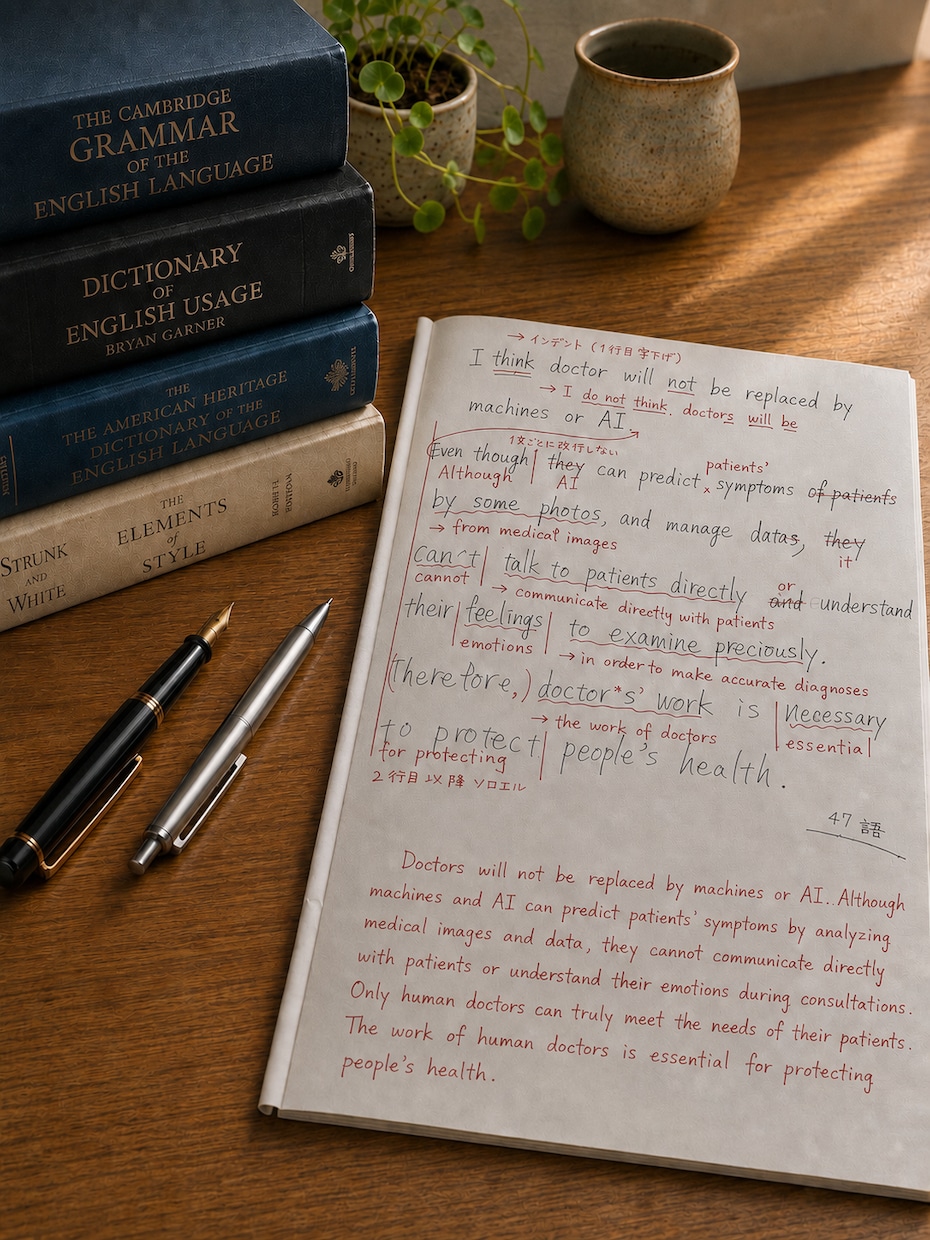 THE CAMBRIDGE
GRAMMAR
OF THE
ENGLISH LANGUAGE
DICTIONARY
OF
ENGLISH USAGE
BRYAN GARNER
THE
THE AMERICAN HERITAGE
DICTIONARY OF THE
ENGLISH LANGUAGE
STRUNK
AND
WHITE
THE
ELEMENTS
of
STYLE
→ インデント (1行目 字下げ)
I think doctor will not be replaced by
→ I do not think doctors will be
machines or AI.
1文ごとに改行しない
Even though they can predict symptoms of patients
Although AI patients'
by some photos, and manage datas, they
→ from medical images it
can't talk to patients directly and understand
cannot → communicate directly with patients or
their feelings to examine preciously.
emotions → in order to make accurate diagnoses
(Therefore,) doctor*s' work is necessary
→ the work of doctors essential
to protect people's health.
for protecting
2行目以降 ソロエル
47 語
Doctors will not be replaced by machines or AI.. Although
machines and AI can predict patients' symptoms by analyzing
medical images and data, they cannot communicate directly
with patients or understand their emotions during consultations.
Only human doctors can truly meet the needs of their patients.
The work of human doctors is essential for protecting
people's health.